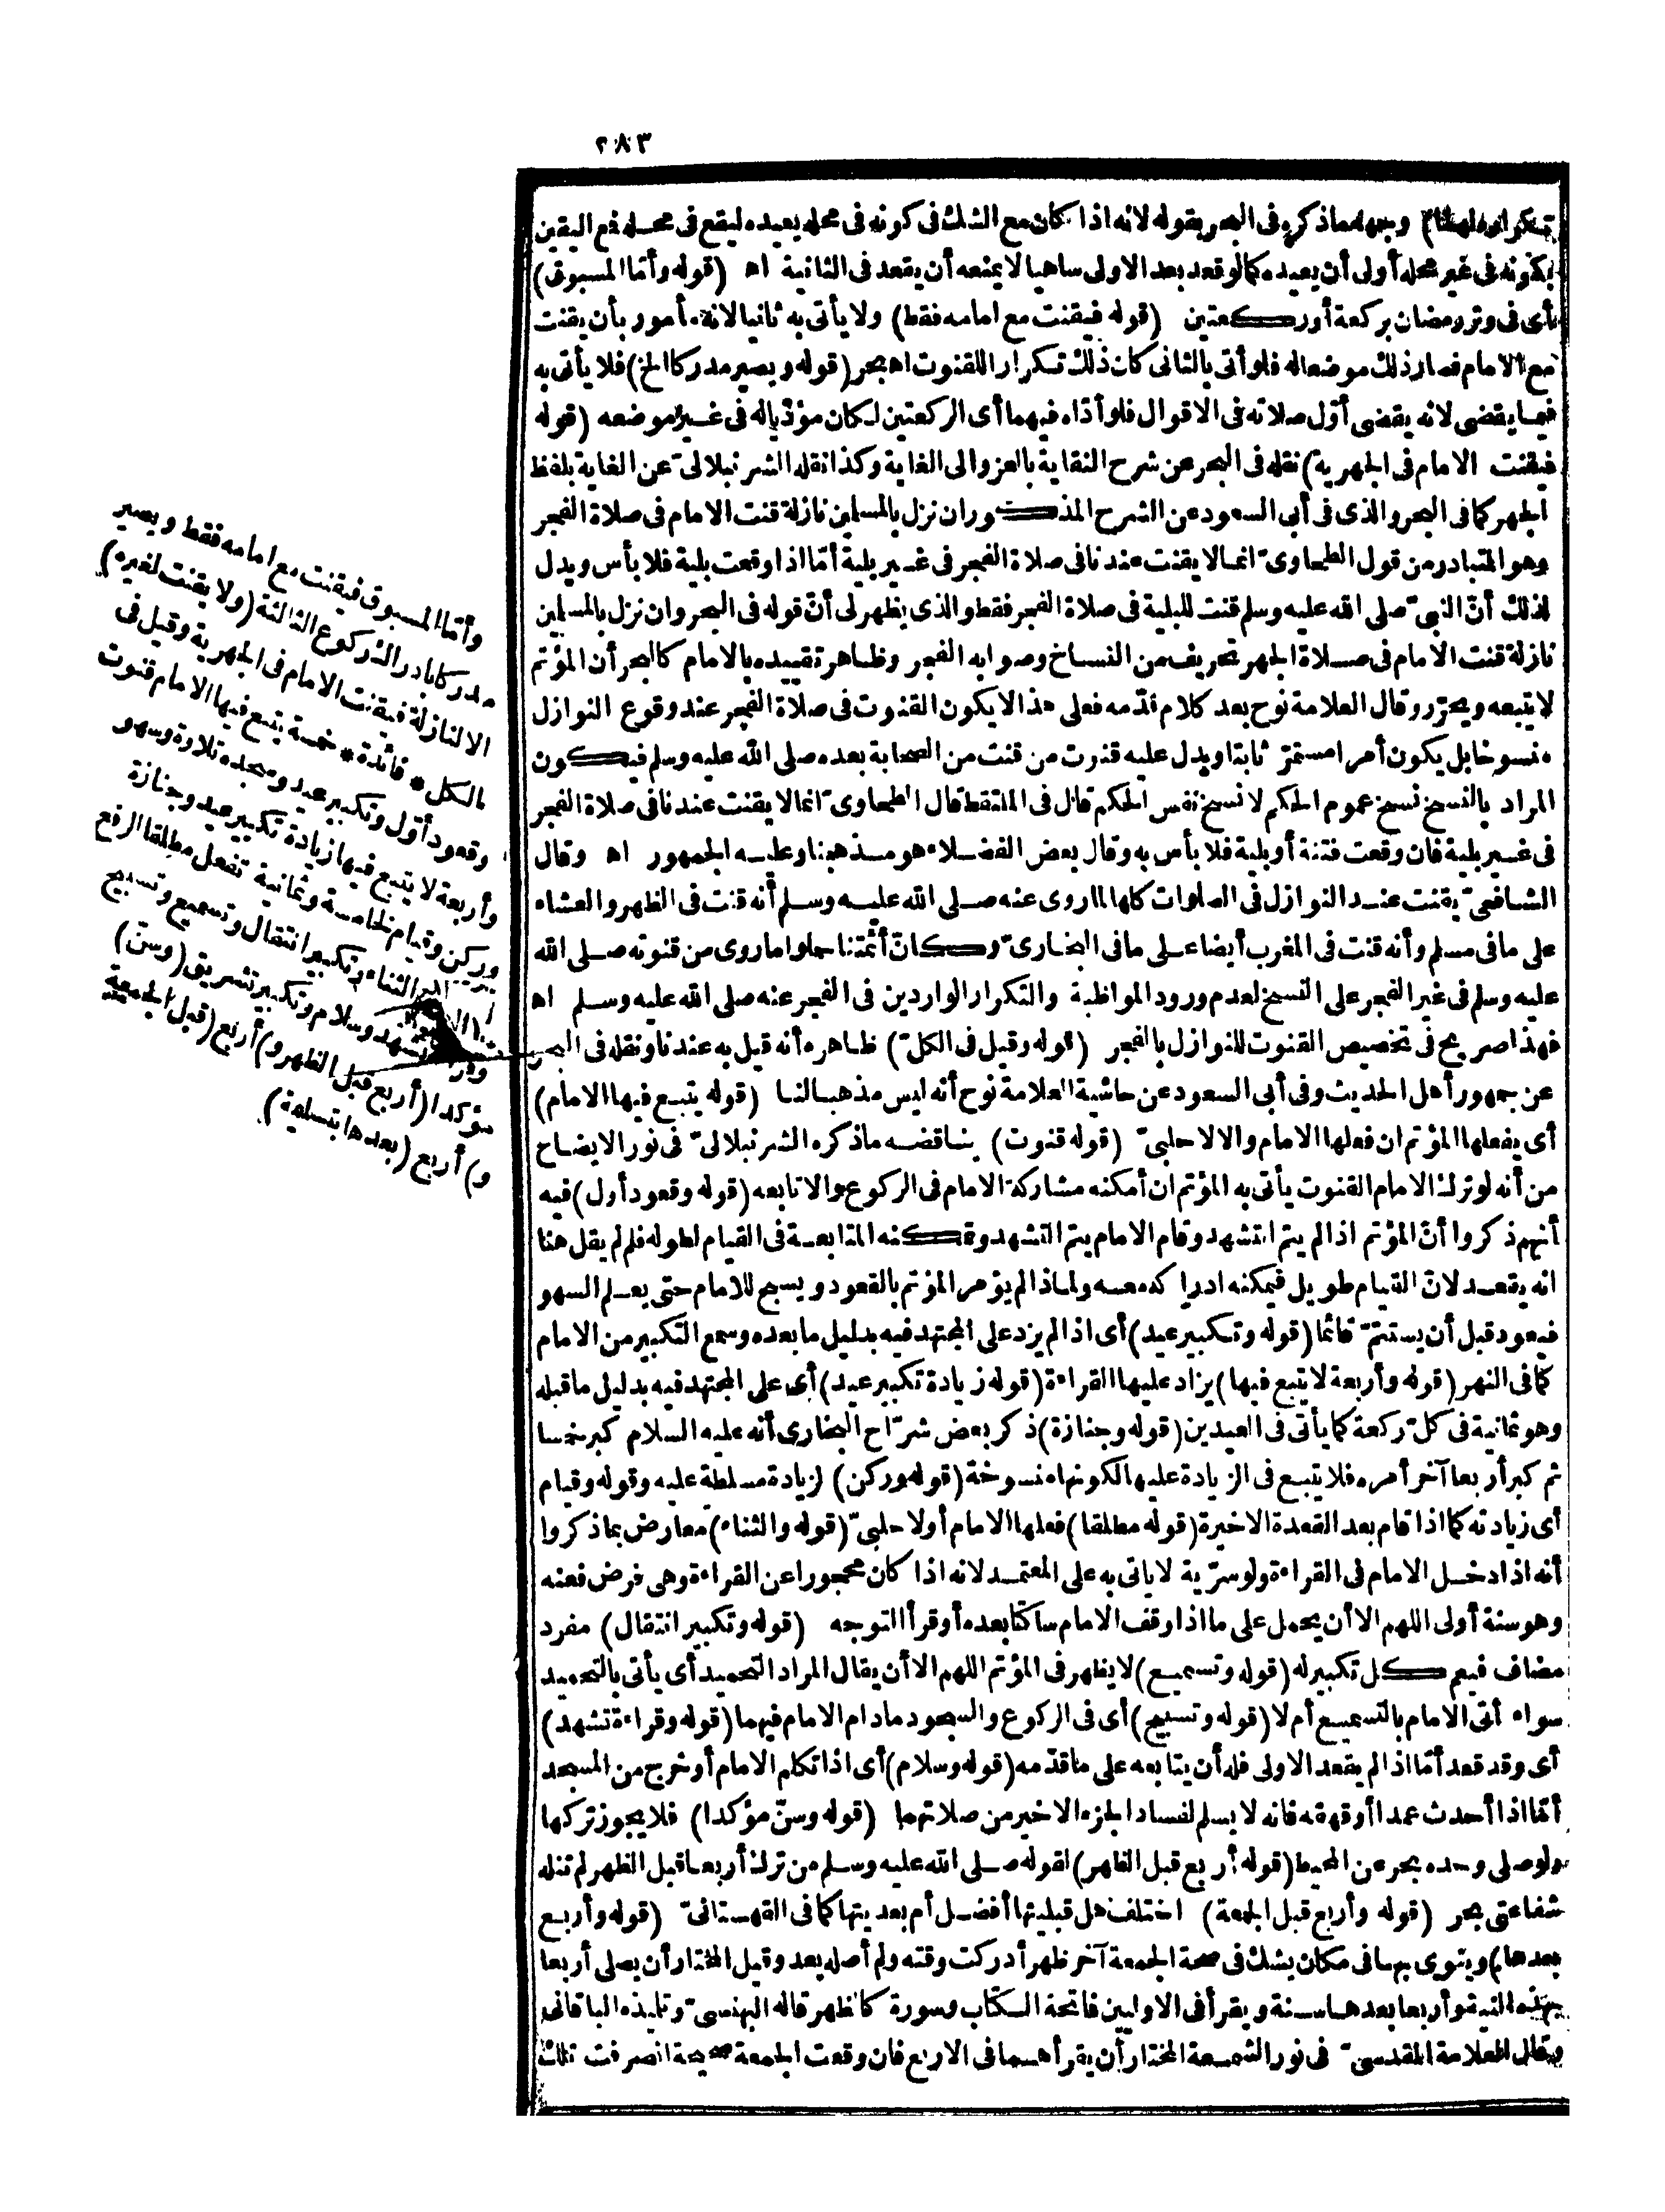 ٢٨٣
وجهله ماذكره فى البحر بقوله لانه اذا كان مع الشك فى كونه فى محله يعيده ليقع فى محله فع اليقين
بكونه فى غير محله أولى أن يعيده كما لو قعد بعد الاولى ساهيا لا يمنعه أن يقعد فى الثانية اه (قوله وأما المسبوق)
أى فى وتر رمضان بركعة أو ركعتين (قوله فيقنت مع امامه فقط) ولا يأتى به ثانيا لانه مأمور بأن يقنت
مع الامام فصار ذلك موضعا له فلو أتى بالثانى كان ذلك تكرارا للقنوت اه بحر (قوله ويصير مدركا الخ) فلا يأتى به
فيما يقضى لانه يقضى أوّل صلاته فى الاقوال فلو أدّاه فيهما أى الركعتين لكان مؤدّيا له فى غير موضعه (قوله
فيقنت الامام فى الجهرية) نقله فى البحر عن شرح النقاية بالعزو الى الغاية وكذا نقله الشرنبلالىّ عن الغاية بلفظ
الجهر كما فى البحر والذى فى أبى السعود عن الشرح المذكور ان نزل بالمسلمين نازلة قنت الامام فى صلاة الفجر
وهو المتبادر من قول الطحاوىّ انما لا يقنت عندنا فى صلاة الفجر فى غير بلية أمّا اذا وقعت بلية فلا بأس ويدل
لذلك أنّ النبىّ صلى الله عليه وسلم قنت للبلية فى صلاة الفجر فقط والذى يظهر لى أنّ قوله فى البحر وان نزل بالمسلمين
نازلة قنت الامام فى صلاة الجهر تحريف من النساخ وصوابه الفجر وظاهر تقييده بالامام كالبحر أن المؤتم
لا يتبعه ويحرّر وقال العلامة نوح بعد كلام قدّمه فعلى هذا لا يكون القنوت فى صلاة الفجر عند وقوع النوازل
منسوخا بل يكون أمرا مستمرّا ثابتا ويدل عليه قنوت من قنت من الصحابة بعده صلى الله عليه وسلم فيكون
المراد بالنسخ نسخ عموم الحكم لا نسخ نفس الحكم قال فى الملتقط قال الطحاوىّ انما لا يقنت عندنا فى صلاة الفجر
فى غير بلية فان وقعت فتنة أو بلية فلا بأس به وقال بعض الفضلاء هو مذهبنا وعليه الجمهور اه وقال
الشافعىّ يقنت عند النوازل فى الصلوات كلها لما روى عنه صلى الله عليه وسلم أنه قنت فى الظهر والعشاء
على ما فى مسلم وأنه قنت فى المغرب أيضا على ما فى البخارىّ وكانّ أئمتنا حملوا ما روى من قنوته صلى الله
عليه وسلم فى غير الفجر على النسخ لعدم ورود المواظبة والتكرار الواردين فى الفجر عنه صلى الله عليه وسلم اه
فهذا صريح فى تخصيص القنوت للنوازل بالفجر (قوله وقيل فى الكلّ) ظاهره أنه قيل به عندنا ونقله فى البحر
عن جمهور أهل الحديث وفى أبى السعود عن حاشية العلامة نوح أنه ليس مذهبا لنا (قوله يتبع فيها الامام)
أى يفعلها المؤتم ان فعلها الامام والا لا حلبىّ (قوله قنوت) يناقضه ما ذكره الشرنبلالىّ فى نور الايضاح
من أنه لو ترك الامام القنوت يأتى به المؤتم ان أمكنه مشاركة الامام فى الركوع والا تابعه (قوله وقعود أول) فيه
أنهم ذكروا أنّ المؤتم اذا لم يتم التشهد وقام الامام يتم التشهد وتمكنه المتابعة فى القيام لطوله فلم لم يقل هنا
انه يقعد لانّ القيام طويل فيمكنه ادراكه معه ولماذا لم يؤمر المؤتم بالقعود ويسبح للامام حتى يعلم السهو
فيعود قبل أن يستتمّ قائما (قوله وتكبير عيد) أى اذا لم يزد على المجتهد فيه بدليل ما بعده وسمع التكبير من الامام
كما فى النهر (قوله وأربعة لا يتبع فيها) يزاد عليها القراءة (قوله زيادة تكبير عيد) أى على المجتهد فيه بدليل ما قبله
وهو ثمانية فى كلّ ركعة كما يأتى فى العيدين (قوله وجنازة) ذكر بعض شرّاح البخارى أنه عليه السلام كبر خمسا
ثم كبر أربعا آخر أمره فلا يتبع فى الزيادة عليها لكونها منسوخة (قوله وركن) لزيادة مسلطة عليه وقوله وقيام
أى زيادته كما اذا قام بعد القعدة الاخيرة (قوله مطلقا) فعلها الامام أولا حلبىّ (قوله والثناء) معارض بما ذكروا
أنه اذا دخل الامام فى القراءة ولو سرّية لا يأتى به على المعتمد لانه اذا كان محجورا عن القراءة وهى فرض فعنه
وهو سنة أولى اللهم الا أن يحمل على ما اذا وقف الامام ساكتا بعده أو قرأ التوجه (قوله وتكبير انتقال) مفرد
مضاف فيعم كل تكبير له (قوله وتسميع) لا يظهر فى المؤتم اللهم الا أن يقال المراد التحميد أى يأتى بالتحميد
سواء أتى الامام بالتسميع أم لا (قوله وتسبيح) أى فى الركوع والسجود ما دام الامام فيهما (قوله وقراءة تشهد)
أى وقد قعد أمّا اذا لم يقعد الاولى فله أن يتابعه على ما قدّمه (قوله وسلام) أى اذا تكلم الامام أو خرج من المسجد
أمّا اذا أحدث عمدا أو قهقه فانه لا يسلم لفساد الجزء الاخير من صلاتهما (قوله وسنّ مؤكدا) فلا يجوز تركها
ولو صلى وحده بحر عن المحيط (قوله أربع قبل الظهر) لقوله صلى الله عليه وسلم من ترك أربعا قبل الظهر لم تنله
شفاعتى بحر (قوله وأربع قبل الجمعة) اختلف هل قبليتها أفضل أم بعديتها كما فى القهستانىّ (قوله وأربع
بعدها) وينوى بها فى مكان يشك فى صحة الجمعة آخر ظهر أدركت وقته ولم أصله بعد وقيل المختار أن يصلى أربعا
بهذه النية وأربعا بعدها سنة ويقرأ فى الاوليين فاتحة الكتاب وسورة كالظهر قاله البهنسىّ وتلميذه الباقانى
وقال العلامة المقدسىّ فى نور الشمعة المختار أن يقرأهما فى الاربع فان وقعت الجمعة صحيحة انصرفت تلك
وأمّا المسبوق فيقنت مع امامه فقط ويصير
مدركا بادراك ركوع الثالثة (ولا يقنت لغيره)
الا لنازلة فيقنت الامام فى الجهرية وقيل فى
الكل * فائدة * خمسة يتبع فيها الامام قنوت
وقعود أوّل وتكبير عيد وسجدة تلاوة وسهو
وأربعة لا يتبع فيها زيادة تكبير عيد وجنازة
وركن وقيام لخامسة وثمانية تفعل مطلقا الرفع
الثناء وتكبير انتقال وتسميع وتسبيح
تشهد وسلام وتكبير تشريق (وسنّ)
مؤكدا (أربع قبل الظهر و) أربع (قبل الجمعة
و) أربع (بعدها بتسليمة)